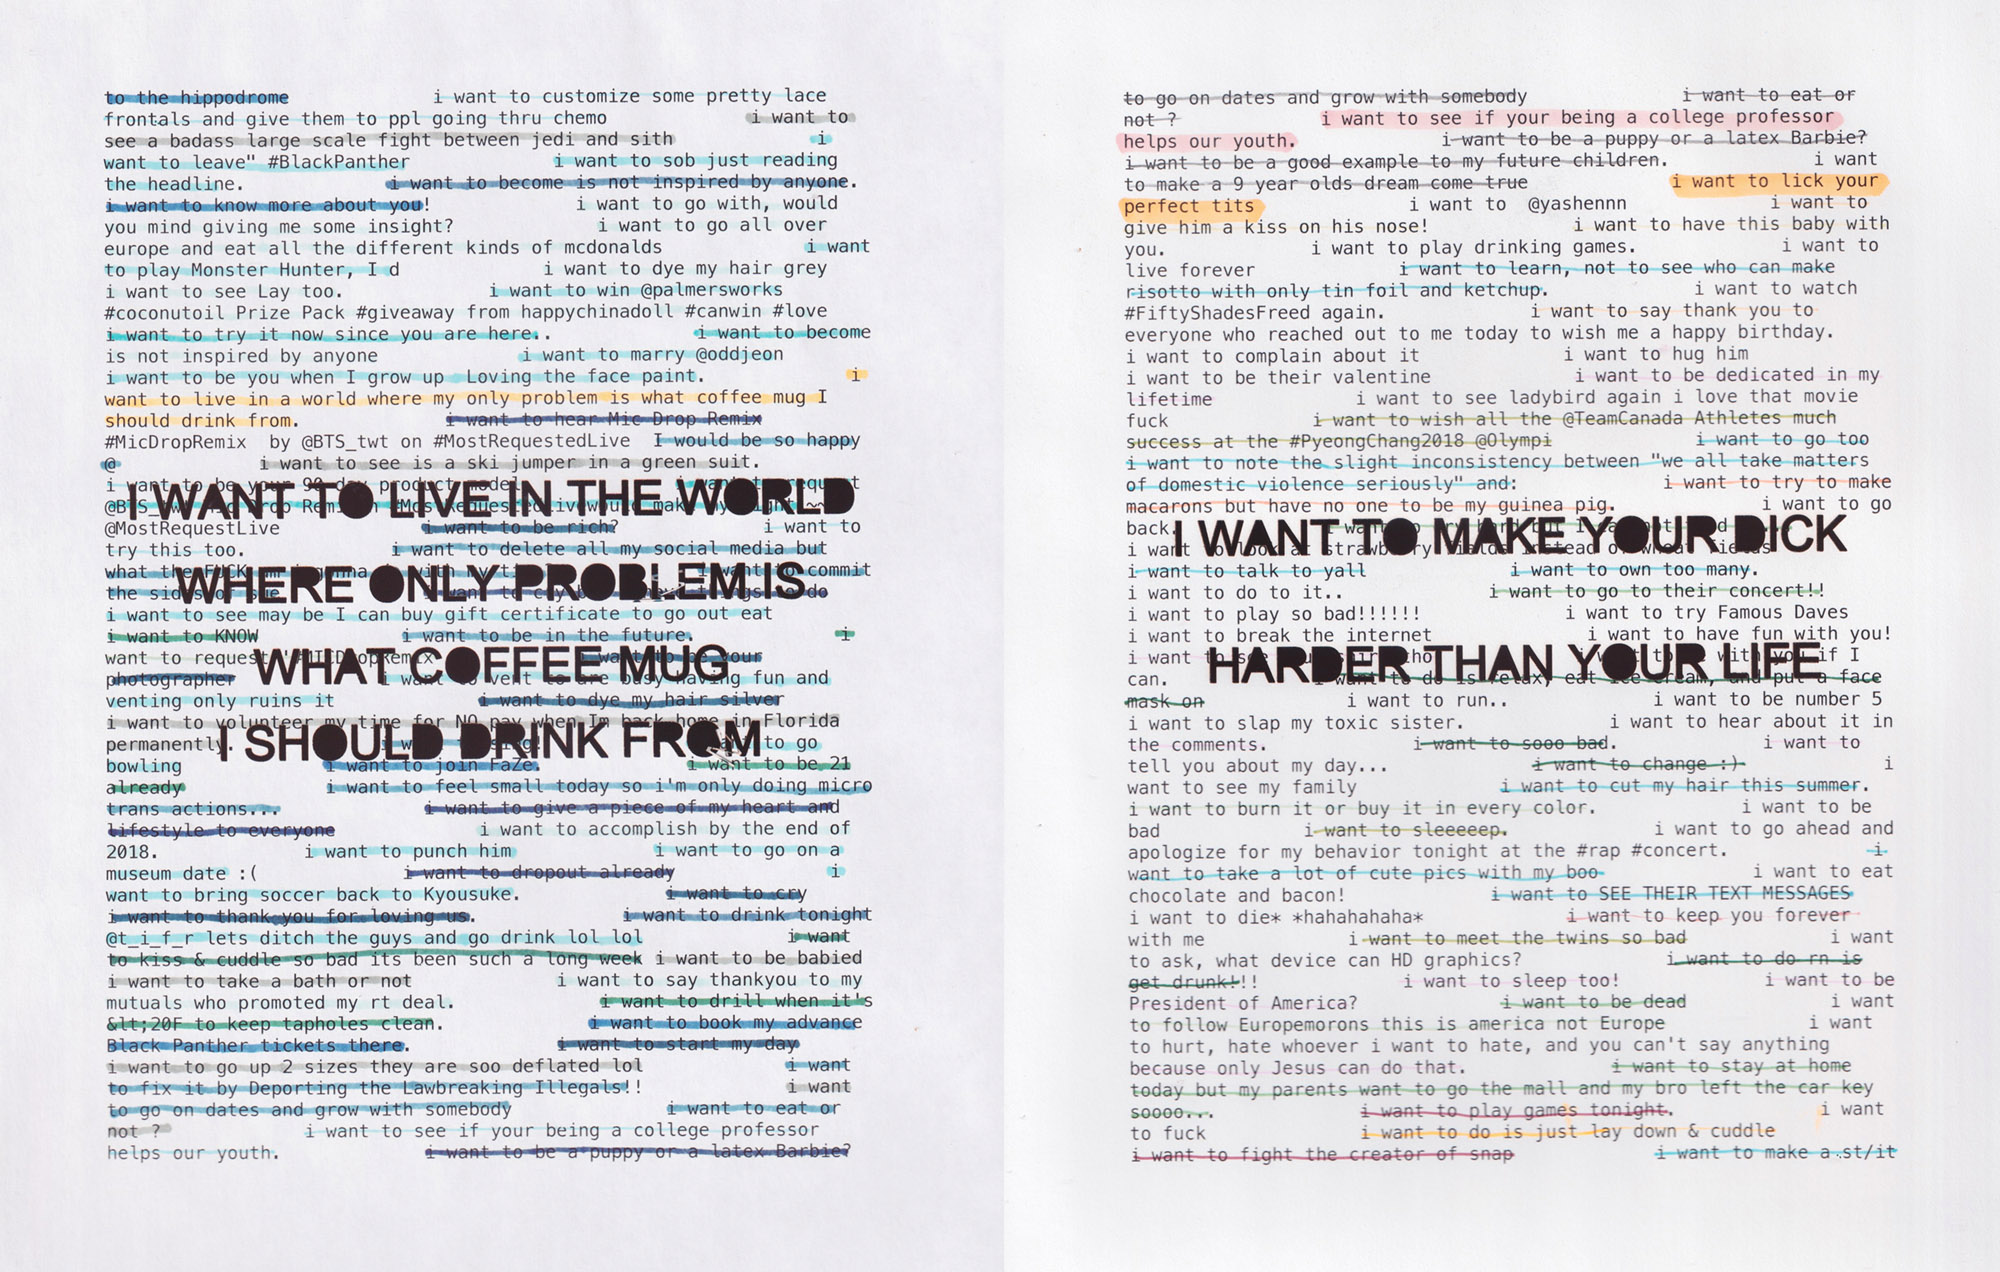 to the hippodrome i want to customize some pretty lace
frontals and give them to ppl going thru chemo i want to
see a badass large scale fight between jedi and sith i
want to leave" #BlackPanther i want to sob just reading
the headline. i want to become is not inspired by anyone.
i want to know more about you! i want to go with, would
you mind giving me some insight? i want to go all over
europe and eat all the different kinds of mcdonalds i want
to play Monster Hunter, I d i want to dye my hair grey
i want to see Lay too. i want to win @palmersworks
#coconutoil Prize Pack #giveaway from happychinadoll #canwin #love
i want to try it now since you are here.. i want to become
is not inspired by anyone i want to marry @oddjeon
i want to be you when I grow up Loving the face paint. i
want to live in a world where my only problem is what coffee mug I
should drink from. i want to hear Mic Drop Remix
#MicDropRemix by @BTS_twt on #MostRequestedLive I would be so happy
@ i want to see is a ski jumper in a green suit.
i want to be your 90 day product model
I WANT TO LIVE IN THE WORLD
@MostRequestLive i want to be rich? i want to
try this too. i want to delete all my social media but
what the FUCK commit
WHERE ONLY PROBLEM IS
i want to see may be I can buy gift certificate to go out eat
i want to KNOW i want to be in the future. i
want to request your
WHAT COFFEE MUG
photographer i want vent are busy having fun and
venting only ruins it i want to dye my hair silver
i want to volunteer my time for NO pay when Im back home in Florida
permanently. to go
I SHOULD DRINK FROM
bowling i want to join FaZe. i want to be 21
already i want to feel small today so i'm only doing micro
trans actions... i want to give a piece of my heart and
lifestyle to everyone i want to accomplish by the end of
2018. i want to punch him i want to go on a
museum date :( i want to dropout already i
want to bring soccer back to Kyousuke. i want to cry
i want to thank you for loving us. i want to drink tonight
@t_i_f_r lets ditch the guys and go drink lol lol i want
to kiss & cuddle so bad its been such a long week i want to be babied
i want to take a bath or not i want to say thankyou to my
mutuals who promoted my rt deal. i want to drill when it's
&lt;20F to keep tapholes clean. i want to book my advance
Black Panther tickets there. i want to start my day
i want to go up 2 sizes they are soo deflated lol i want
to fix it by Deporting the Lawbreaking Illegals!! i want
to go on dates and grow with somebody i want to eat or
not ? i want to see if your being a college professor
helps our youth. i want to be a puppy or a latex Barbie?
to go on dates and grow with somebody i want to eat or
not ? i want to see if your being a college professor
helps our youth. i want to be a puppy or a latex Barbie?
i want to be a good example to my future children. i want
to make a 9 year olds dream come true i want to lick your
perfect tits i want to @yashennn i want to
give him a kiss on his nose! i want to have this baby with
you. i want to play drinking games. i want to
live forever i want to learn, not to see who can make
risotto with only tin foil and ketchup. i want to watch
#FiftyShadesFreed again. i want to say thank you to
everyone who reached out to me today to wish me a happy birthday.
i want to complain about it i want to hug him
i want to be their valentine i want to be dedicated in my
lifetime i want to see ladybird again i love that movie
fuck i want to wish all the @TeamCanada Athletes much
success at the #PyeongChang2018 @Olympi i want to go too
i want to note the slight inconsistency between "we all take matters
of domestic violence seriously" and: i want to try to make
macarons but have no one to be my guinea pig. i want to go
back.
I WANT TO MAKE YOUR DICK
i want look at strawberry fields instead of wheat fields
i want to talk to yall i want to own too many.
i want to do to it.. i want to go to their concert!!
i want to play so bad!!!!!! i want to try Famous Daves
i want to break the internet i want to have fun with you!
i want to see with if I
HARDER THAN YOUR LIFE
can. i want to do is relax, eat ice cream, and put a face
mask on i want to run.. i want to be number 5
i want to slap my toxic sister. i want to hear about it in
the comments. i want to sooo bad. i want to
tell you about my day... i want to change :) i
want to see my family i want to cut my hair this summer.
i want to burn it or buy it in every color. i want to be
bad i want to sleeeeep. i want to go ahead and
apologize for my behavior tonight at the #rap #concert. i
want to take a lot of cute pics with my boo i want to eat
chocolate and bacon! i want to SEE THEIR TEXT MESSAGES
i want to die* *hahahahaha* i want to keep you forever
with me i want to meet the twins so bad i want
to ask, what device can HD graphics? i want to do rn is
get drunk!!! i want to sleep too! i want to be
President of America? i want to be dead i want
to follow Europemorons this is america not Europe i want
to hurt, hate whoever i want to hate, and you can't say anything
because only Jesus can do that. i want to stay at home
today but my parents want to go the mall and my bro left the car key
soooo... i want to play games tonight. i want
to fuck i want to do is just lay down & cuddle
i want to fight the creator of snap i want to make a.st/it